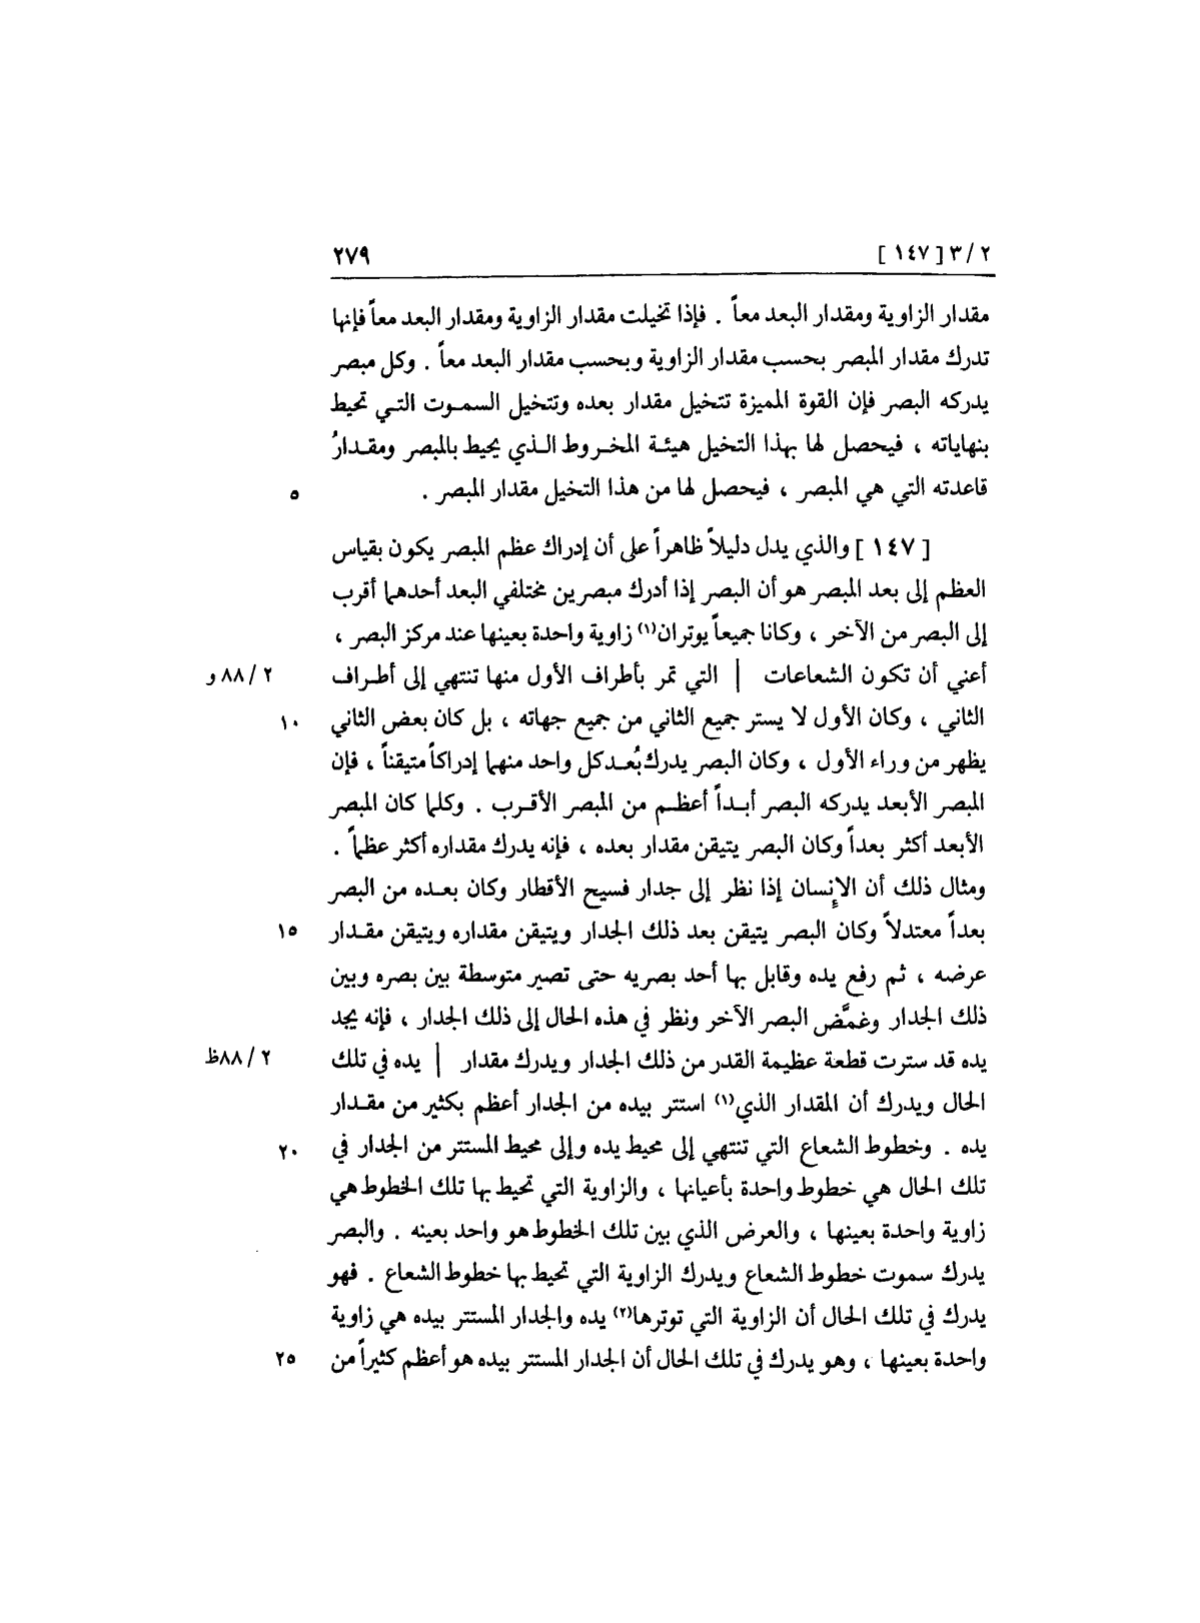 ٢ / ٣ [ ١٤٧ ] ٢٧٩
مقدار الزاوية ومقدار البعد معاً . فإذا تخيلت مقدار الزاوية ومقدار البعد معاً فإنها
تدرك مقدار المبصر بحسب مقدار الزاوية وبحسب مقدار البعد معاً . وكل مبصر
يدركه البصر فإن القوة المميزة تتخيل مقدار بعده وتتخيل السموت التي تحيط
بنهاياته ، فيحصل لها بهذا التخيل هيئة المخروط الذي يحيط بالمبصر ومقدارُ
قاعدته التي هي المبصر ، فيحصل لها من هذا التخيل مقدار المبصر . ٥
[ ١٤٧ ] والذي يدل دليلاً ظاهراً على أن إدراك عظم المبصر يكون بقياس
العظم إلى بعد المبصر هو أن البصر إذا أدرك مبصرين مختلفي البعد أحدهما أقرب
إلى البصر من الآخر ، وكانا جميعاً يوتران(١) زاوية واحدة بعينها عند مركز البصر ،
أعني أن تكون الشعاعات | التي تمر بأطراف الأول منها تنتهي إلى أطراف ٢ / ٨٨ و
الثاني ، وكان الأول لا يستر جميع الثاني من جميع جهاته ، بل كان بعض الثاني ١٠
يظهر من وراء الأول ، وكان البصر يدرك بُعد كل واحد منهما إدراكاً متيقناً ، فإن
المبصر الأبعد يدركه البصر أبداً أعظم من المبصر الأقرب . وكلما كان المبصر
الأبعد أكثر بعداً وكان البصر يتيقن مقدار بعده ، فإنه يدرك مقداره أكثر عظماً .
ومثال ذلك أن الإنسان إذا نظر إلى جدار فسيح الأقطار وكان بعده من البصر
بعداً معتدلاً وكان البصر يتيقن بعد ذلك الجدار ويتيقن مقداره ويتيقن مقدار ١٥
عرضه ، ثم رفع يده وقابل بها أحد بصريه حتى تصير متوسطة بين بصره وبين
ذلك الجدار وغمَّض البصر الآخر ونظر في هذه الحال إلى ذلك الجدار ، فإنه يجد
يده قد سترت قطعة عظيمة القدر من ذلك الجدار ويدرك مقدار | يده في تلك ٢ / ٨٨ظ
الحال ويدرك أن المقدار الذي(١) استتر بيده من الجدار أعظم بكثير من مقدار
يده . وخطوط الشعاع التي تنتهي إلى محيط يده وإلى محيط المستتر من الجدار في ٢٠
تلك الحال هي خطوط واحدة بأعيانها ، والزاوية التي تحيط بها تلك الخطوط هي
زاوية واحدة بعينها ، والعرض الذي بين تلك الخطوط هو واحد بعينه . والبصر
يدرك سموت خطوط الشعاع ويدرك الزاوية التي تحيط بها خطوط الشعاع . فهو
يدرك في تلك الحال أن الزاوية التي توترها(٢) يده والجدار المستتر بيده هي زاوية
واحدة بعينها ، وهو يدرك في تلك الحال أن الجدار المستتر بيده هو أعظم كثيراً من ٢٥